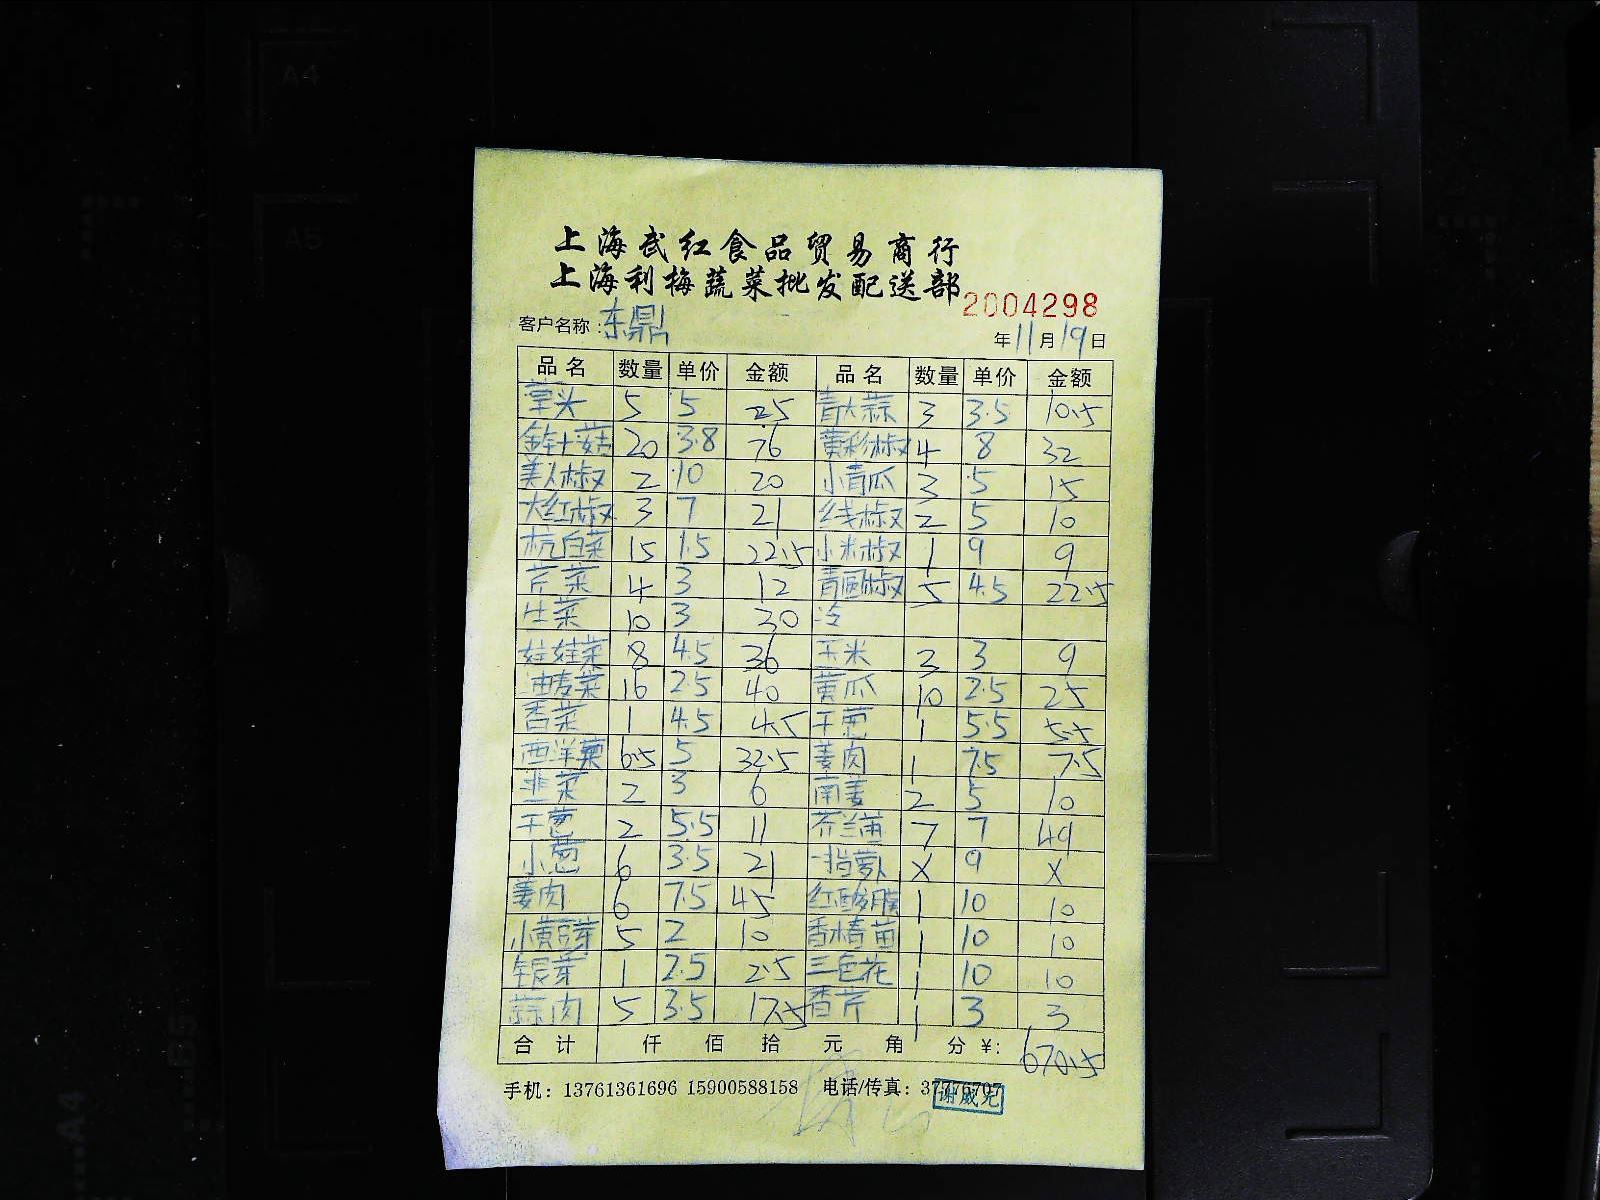 上海武红食品贸易商行
上海利梅蔬菜批发配送部
2004298
客户名称：东鼎 年11月19日
品名 数量 单价 金额 品名 数量 单价 金额
5 5 25 青大蒜 3 3.5 10.5
金针菇 20 3.8 76 黄彩椒 4 8 32
美人椒 2 10 20 小青瓜 3 5 15
大红椒 3 7 21 线椒 2 5 10
杭白菜 15 1.5 22.5 小米椒 1 9 9
芹菜 4 3 12 青圆椒 5 4.5 22.5
生菜 10 3 30 冷
娃娃菜 8 4.5 36 玉米 3 3 9
油麦菜 16 2.5 40 黄瓜 10 2.5 25
香菜 1 4.5 4.5 干葱 1 5.5 5.5
西洋菜 6.5 5 32.5 姜肉 1 7.5 7.5
韭菜 2 3 6 南姜 2 5 10
干葱 2 5.5 11 芥兰苗 7 7 49
小葱 6 3.5 21 一指萝卜 X 9 X
姜肉 6 7.5 45 红酸膜 1 10 10
小黄豆芽 5 2 10 香椿苗 1 10 10
银芽 1 2.5 2.5 三色花 1 10 10
蒜肉 5 3.5 17.5 香芹 1 3 3
合计 仟 佰 拾 元 角 分 ¥: 670.5
手机：13761361696 15900588158 电话/传真：37776707